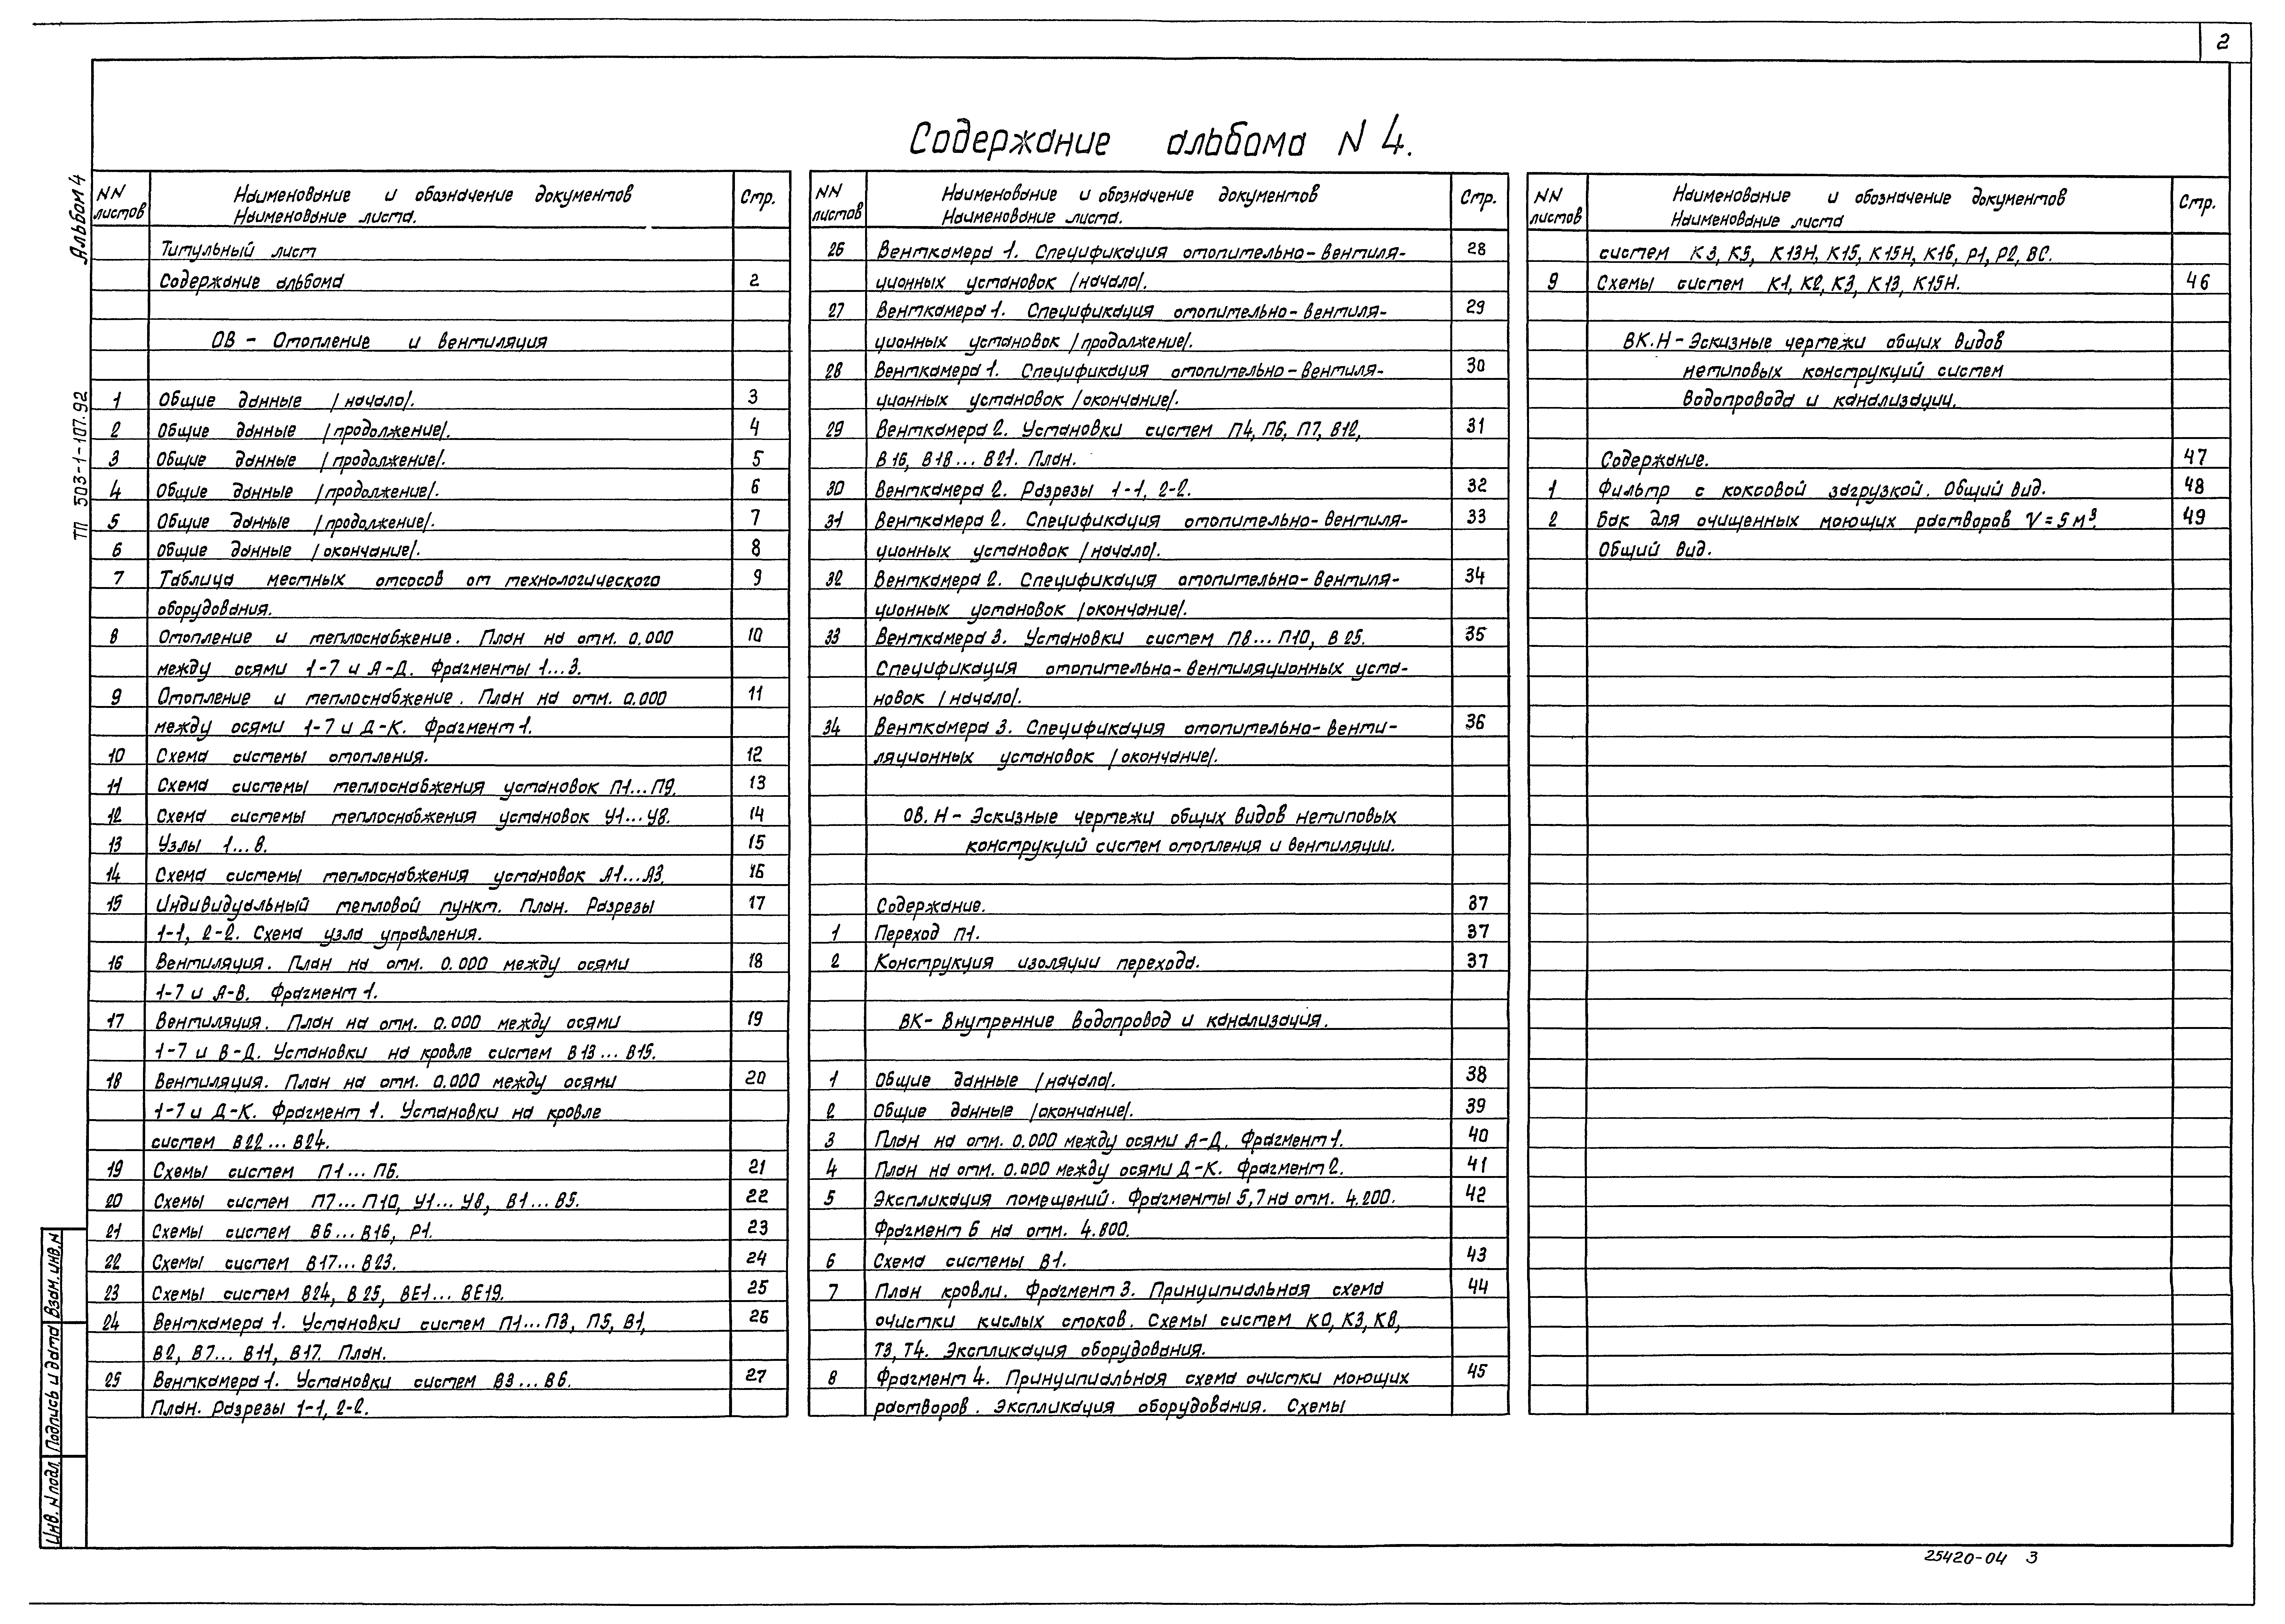 2
Содержание альбома N 4.
Альбом 4
ТП 503-1-107.92
NN листов
Наименование и обозначение документов
Наименование листа.
Стр.
Титульный лист
Содержание альбома 2
ОВ - Отопление и вентиляция
1 Общие данные /начало/. 3
2 Общие данные /продолжение/. 4
3 Общие данные /продолжение/. 5
4 Общие данные /продолжение/. 6
5 Общие данные /продолжение/. 7
6 Общие данные /окончание/. 8
7 Таблица местных отсосов от технологического 9
оборудования.
8 Отопление и теплоснабжение. План на отм. 0.000 10
между осями 1-7 и А-Д. Фрагменты 1...3.
9 Отопление и теплоснабжение. План на отм. 0.000 11
между осями 1-7 и Д-К. Фрагмент 1.
10 Схема системы отопления. 12
11 Схема системы теплоснабжения установок П1...П9. 13
12 Схема системы теплоснабжения установок У1...У8. 14
13 Узлы 1...8. 15
14 Схема системы теплоснабжения установок А1...А3. 16
15 Индивидуальный тепловой пункт. План. Разрезы 17
1-1, 2-2. Схема узла управления.
16 Вентиляция. План на отм. 0.000 между осями 18
1-7 и А-В. Фрагмент 1.
17 Вентиляция. План на отм. 0.000 между осями 19
1-7 и В-Д. Установки на кровле систем В13...В15.
18 Вентиляция. План на отм. 0.000 между осями 20
1-7 и Д-К. Фрагмент 1. Установки на кровле
систем В22...В24.
19 Схемы систем П1...П6. 21
20 Схемы систем П7...П10, У1...У8, В1...В5. 22
21 Схемы систем В6...В16, Р1. 23
22 Схемы систем В17...В23. 24
23 Схемы систем В24, В25, ВЕ1...ВЕ19. 25
24 Венткамера 1. Установки систем П1...П3, П5, В1, 26
В2, В7...В11, В17. План.
25 Венткамера 1. Установки систем В3...В6. 27
План. Разрезы 1-1, 2-2.
NN листов
Наименование и обозначение документов
Наименование листа.
Стр.
26 Венткамера 1. Спецификация отопительно-вентиля- 28
ционных установок /начало/.
27 Венткамера 1. Спецификация отопительно-вентиля- 29
ционных установок /продолжение/.
28 Венткамера 1. Спецификация отопительно-вентиля- 30
ционных установок /окончание/.
29 Венткамера 2. Установки систем П4, П6, П7, В12, 31
В16, В18...В21. План.
30 Венткамера 2. Разрезы 1-1, 2-2. 32
31 Венткамера 2. Спецификация отопительно-вентиля- 33
ционных установок /начало/.
32 Венткамера 2. Спецификация отопительно-вентиля- 34
ционных установок /окончание/.
33 Венткамера 3. Установки систем П8...П10, В25. 35
Спецификация отопительно-вентиляционных уста-
новок /начало/.
34 Венткамера 3. Спецификация отопительно-венти- 36
ляционных установок /окончание/.
ОВ.Н - Эскизные чертежи общих видов нетиповых
конструкций систем отопления и вентиляции.
Содержание. 37
1 Переход П1. 37
2 Конструкция изоляции перехода. 37
ВК- Внутренние водопровод и канализация.
1 Общие данные /начало/. 38
2 Общие данные /окончание/. 39
3 План на отм. 0.000 между осями А-Д. Фрагмент 1. 40
4 План на отм. 0.000 между осями Д-К. Фрагмент 2. 41
5 Экспликация помещений. Фрагменты 5,7 на отм. 4.200. 42
Фрагмент 6 на отм. 4.800.
6 Схема системы В1. 43
7 План кровли. Фрагмент 3. Принципиальная схема 44
очистки кислых стоков. Схемы систем К0, К3, К8,
Т3, Т4. Экспликация оборудования.
8 Фрагмент 4. Принципиальная схема очистки моющих 45
растворов. Экспликация оборудования. Схемы
NN листов
Наименование и обозначение документов
Наименование листа
Стр.
систем К3, К5, К13Н, К15, К15Н, К16, Р1, Р2, ВС.
9 Схемы систем К1, К2, К3, К13, К15Н. 46
ВК.Н - Эскизные чертежи общих видов
нетиповых конструкций систем
водопровода и канализации.
Содержание. 47
1 Фильтр с коксовой загрузкой. Общий вид. 48
2 Бак для очищенных моющих растворов V = 5 м³. 49
Общий вид.
Взам. инв. N
Подпись и дата
Инв. N подл.
25420-04 3